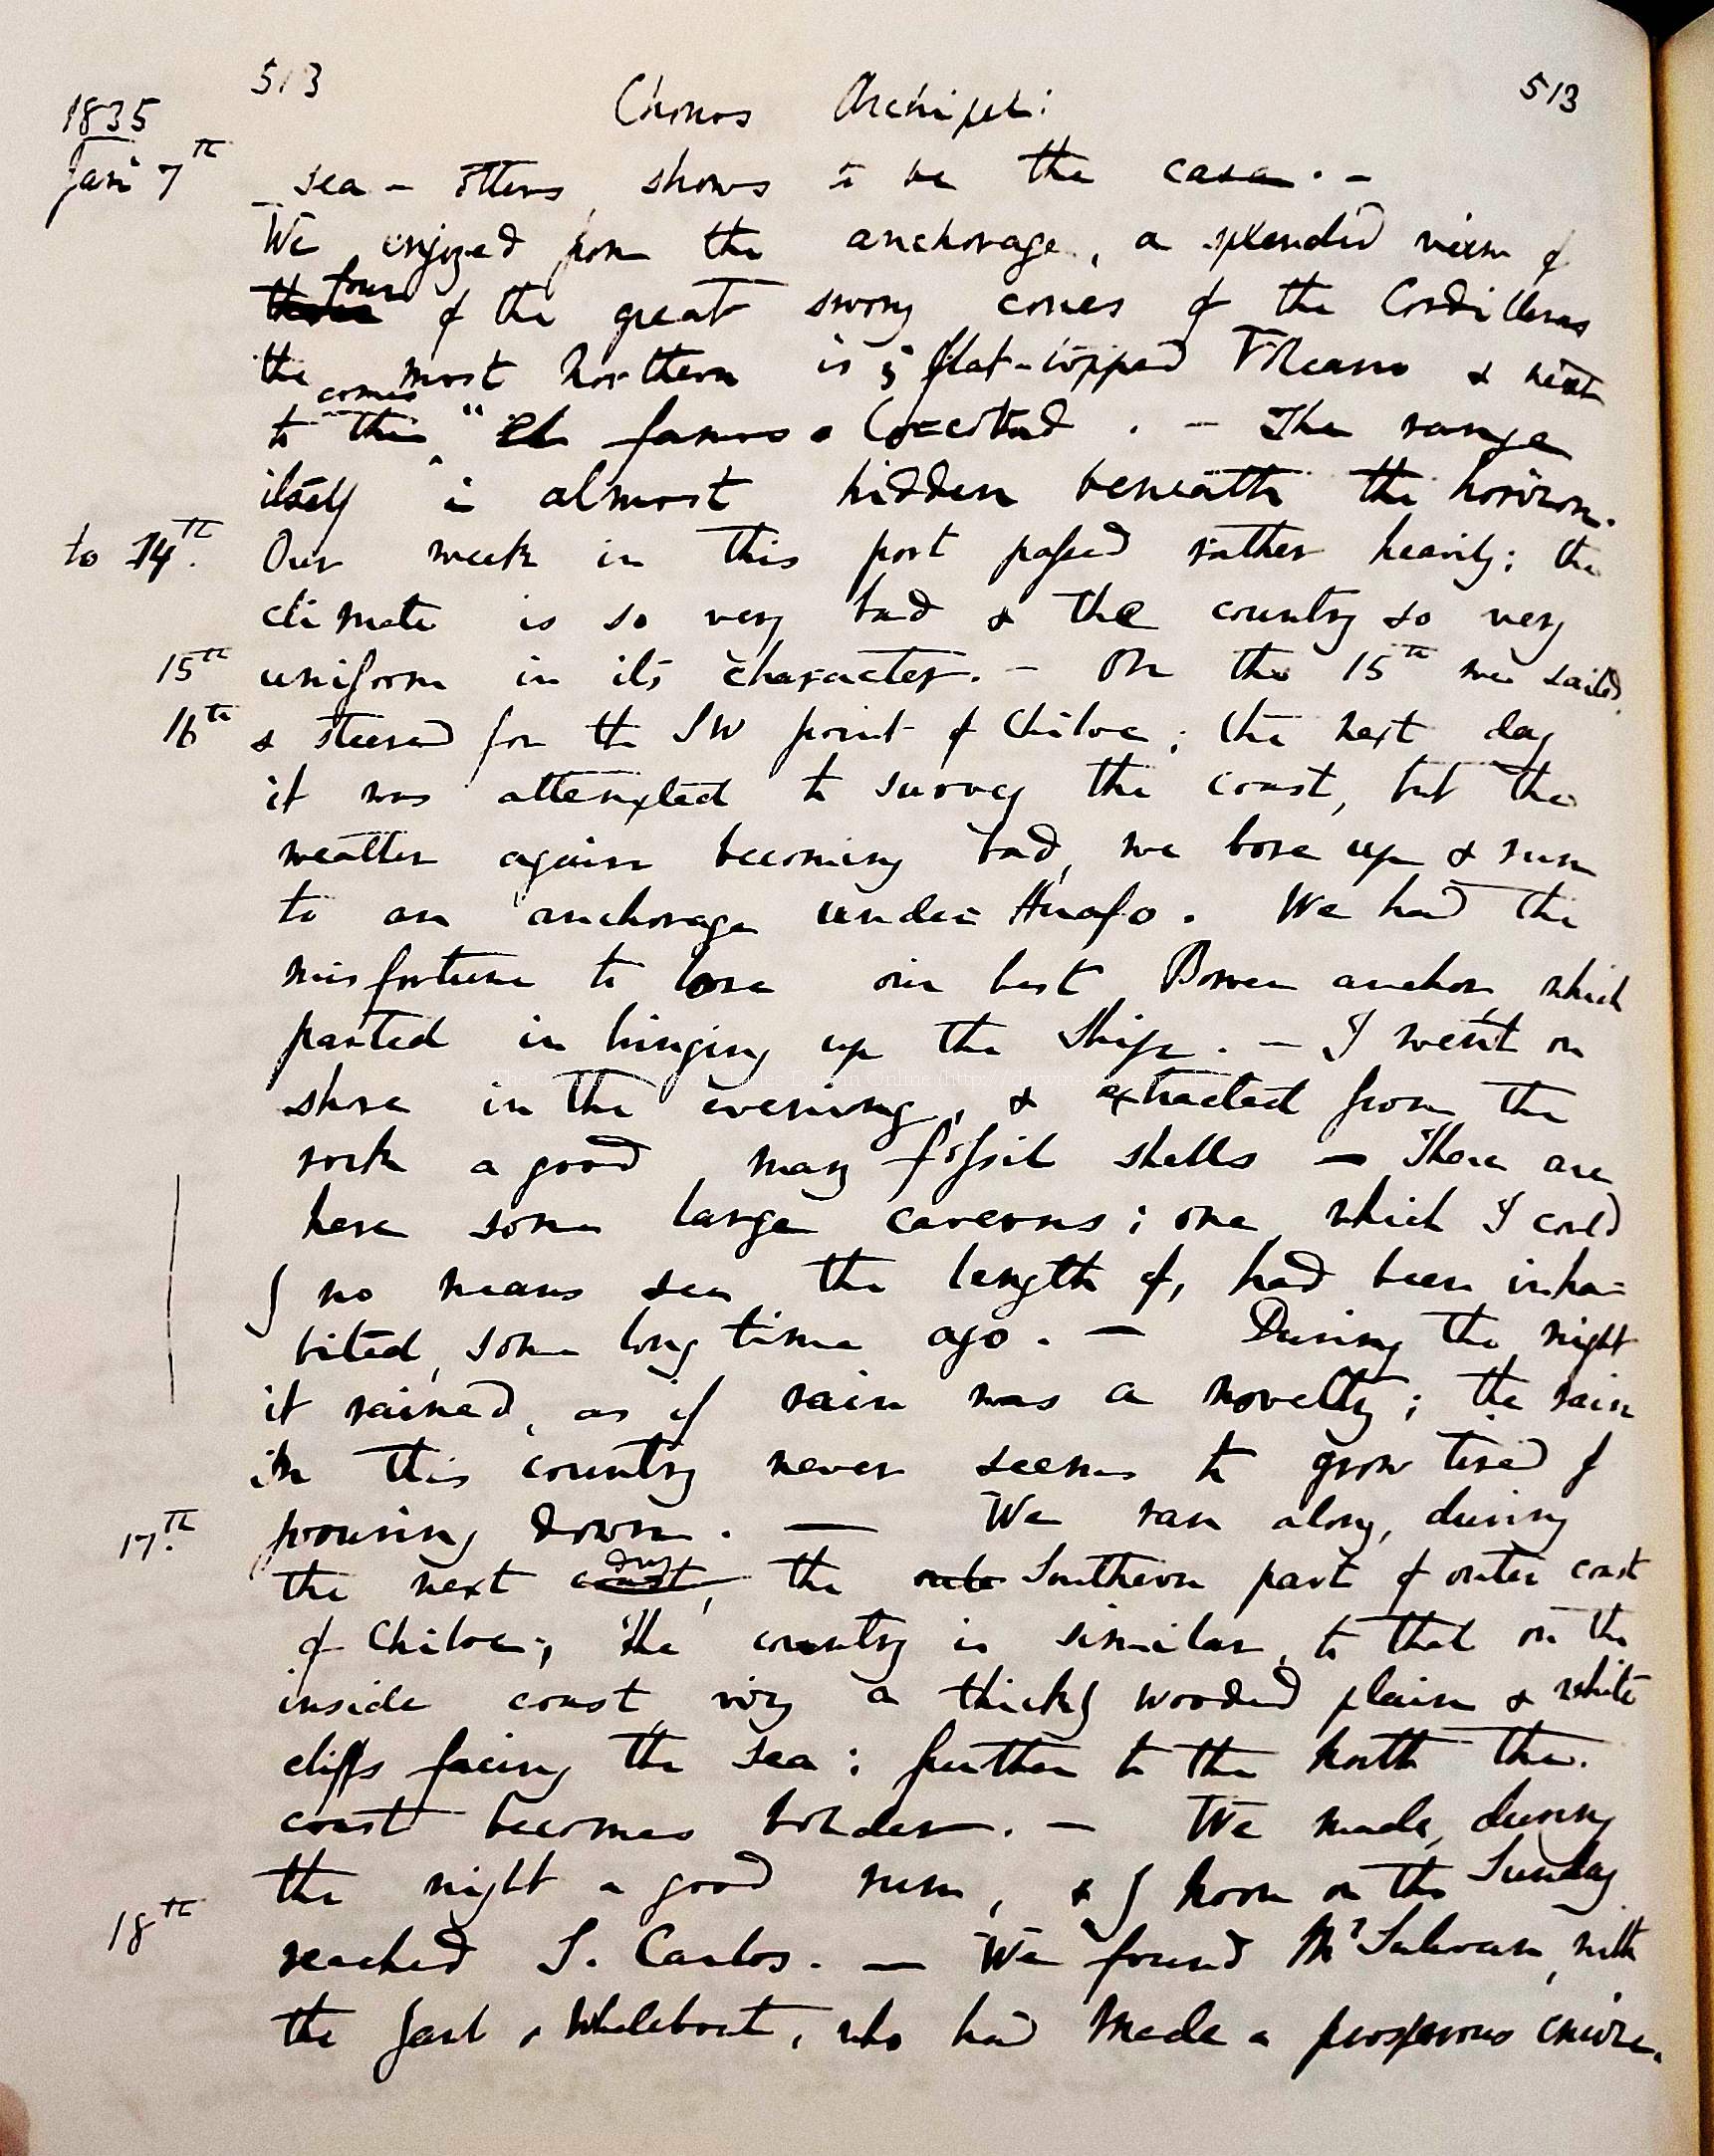 513 Chonos Archipel: 513
1835
Jan 7th sea-otters, shows to be the case. —
We enjoyed from the anchorage, a splendid view of
four
of the great snowy cones of the Cordilleras
the most Northern is flat-topped Volcano & next
comes
to this "el famoso Corcovado. — The range
itself is almost hidden beneath the horizon.
to 14th. Our week in this port passed rather heavily; the
climate is so very bad & the country so very
15th uniform in its character. — On the 15th we sailed
16th & steered for the SW point of Chiloe; the next day
it was attempted to survey the coast, but the
weather again becoming bad, we bore up & run
to an anchorage under Huafo. We had the
misfortune to lose our best Bower anchor, which
parted in bringing up the Ship. — I went on
shore in the evening, & extracted from the
rock a good many fossil shells — There are
here some large caverns; one, which I could
by no means see the length of, had been inha=
bited, some long time ago. — During the night
it rained, as if rain was a novelty; the rain
in this country never seems to grow tired of
17th. pouring down. — We ran along, during
day
the next coast, the oute Southern part of outer coast
of Chiloe; The country is similar, to that on the
inside coast, viz a thickly wooded plain & white
cliffs facing the sea: further to the North the
coast becomes bolder. — We made, during
the night a good run, & by noon on the Sunday
18th reached S. Carlos. — We found Mr Sulivan, with
the Yawl & Whaleboat, who had made a prosperous cruize.